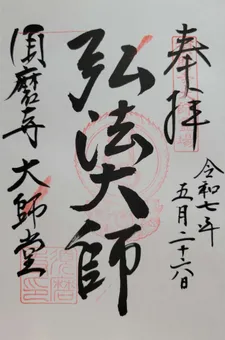 奉拝
令和七年
五月二十六日
弘法大師
須磨寺 大師堂